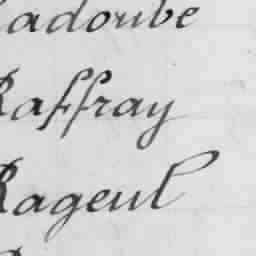 Radoube
Raffray
Rageul